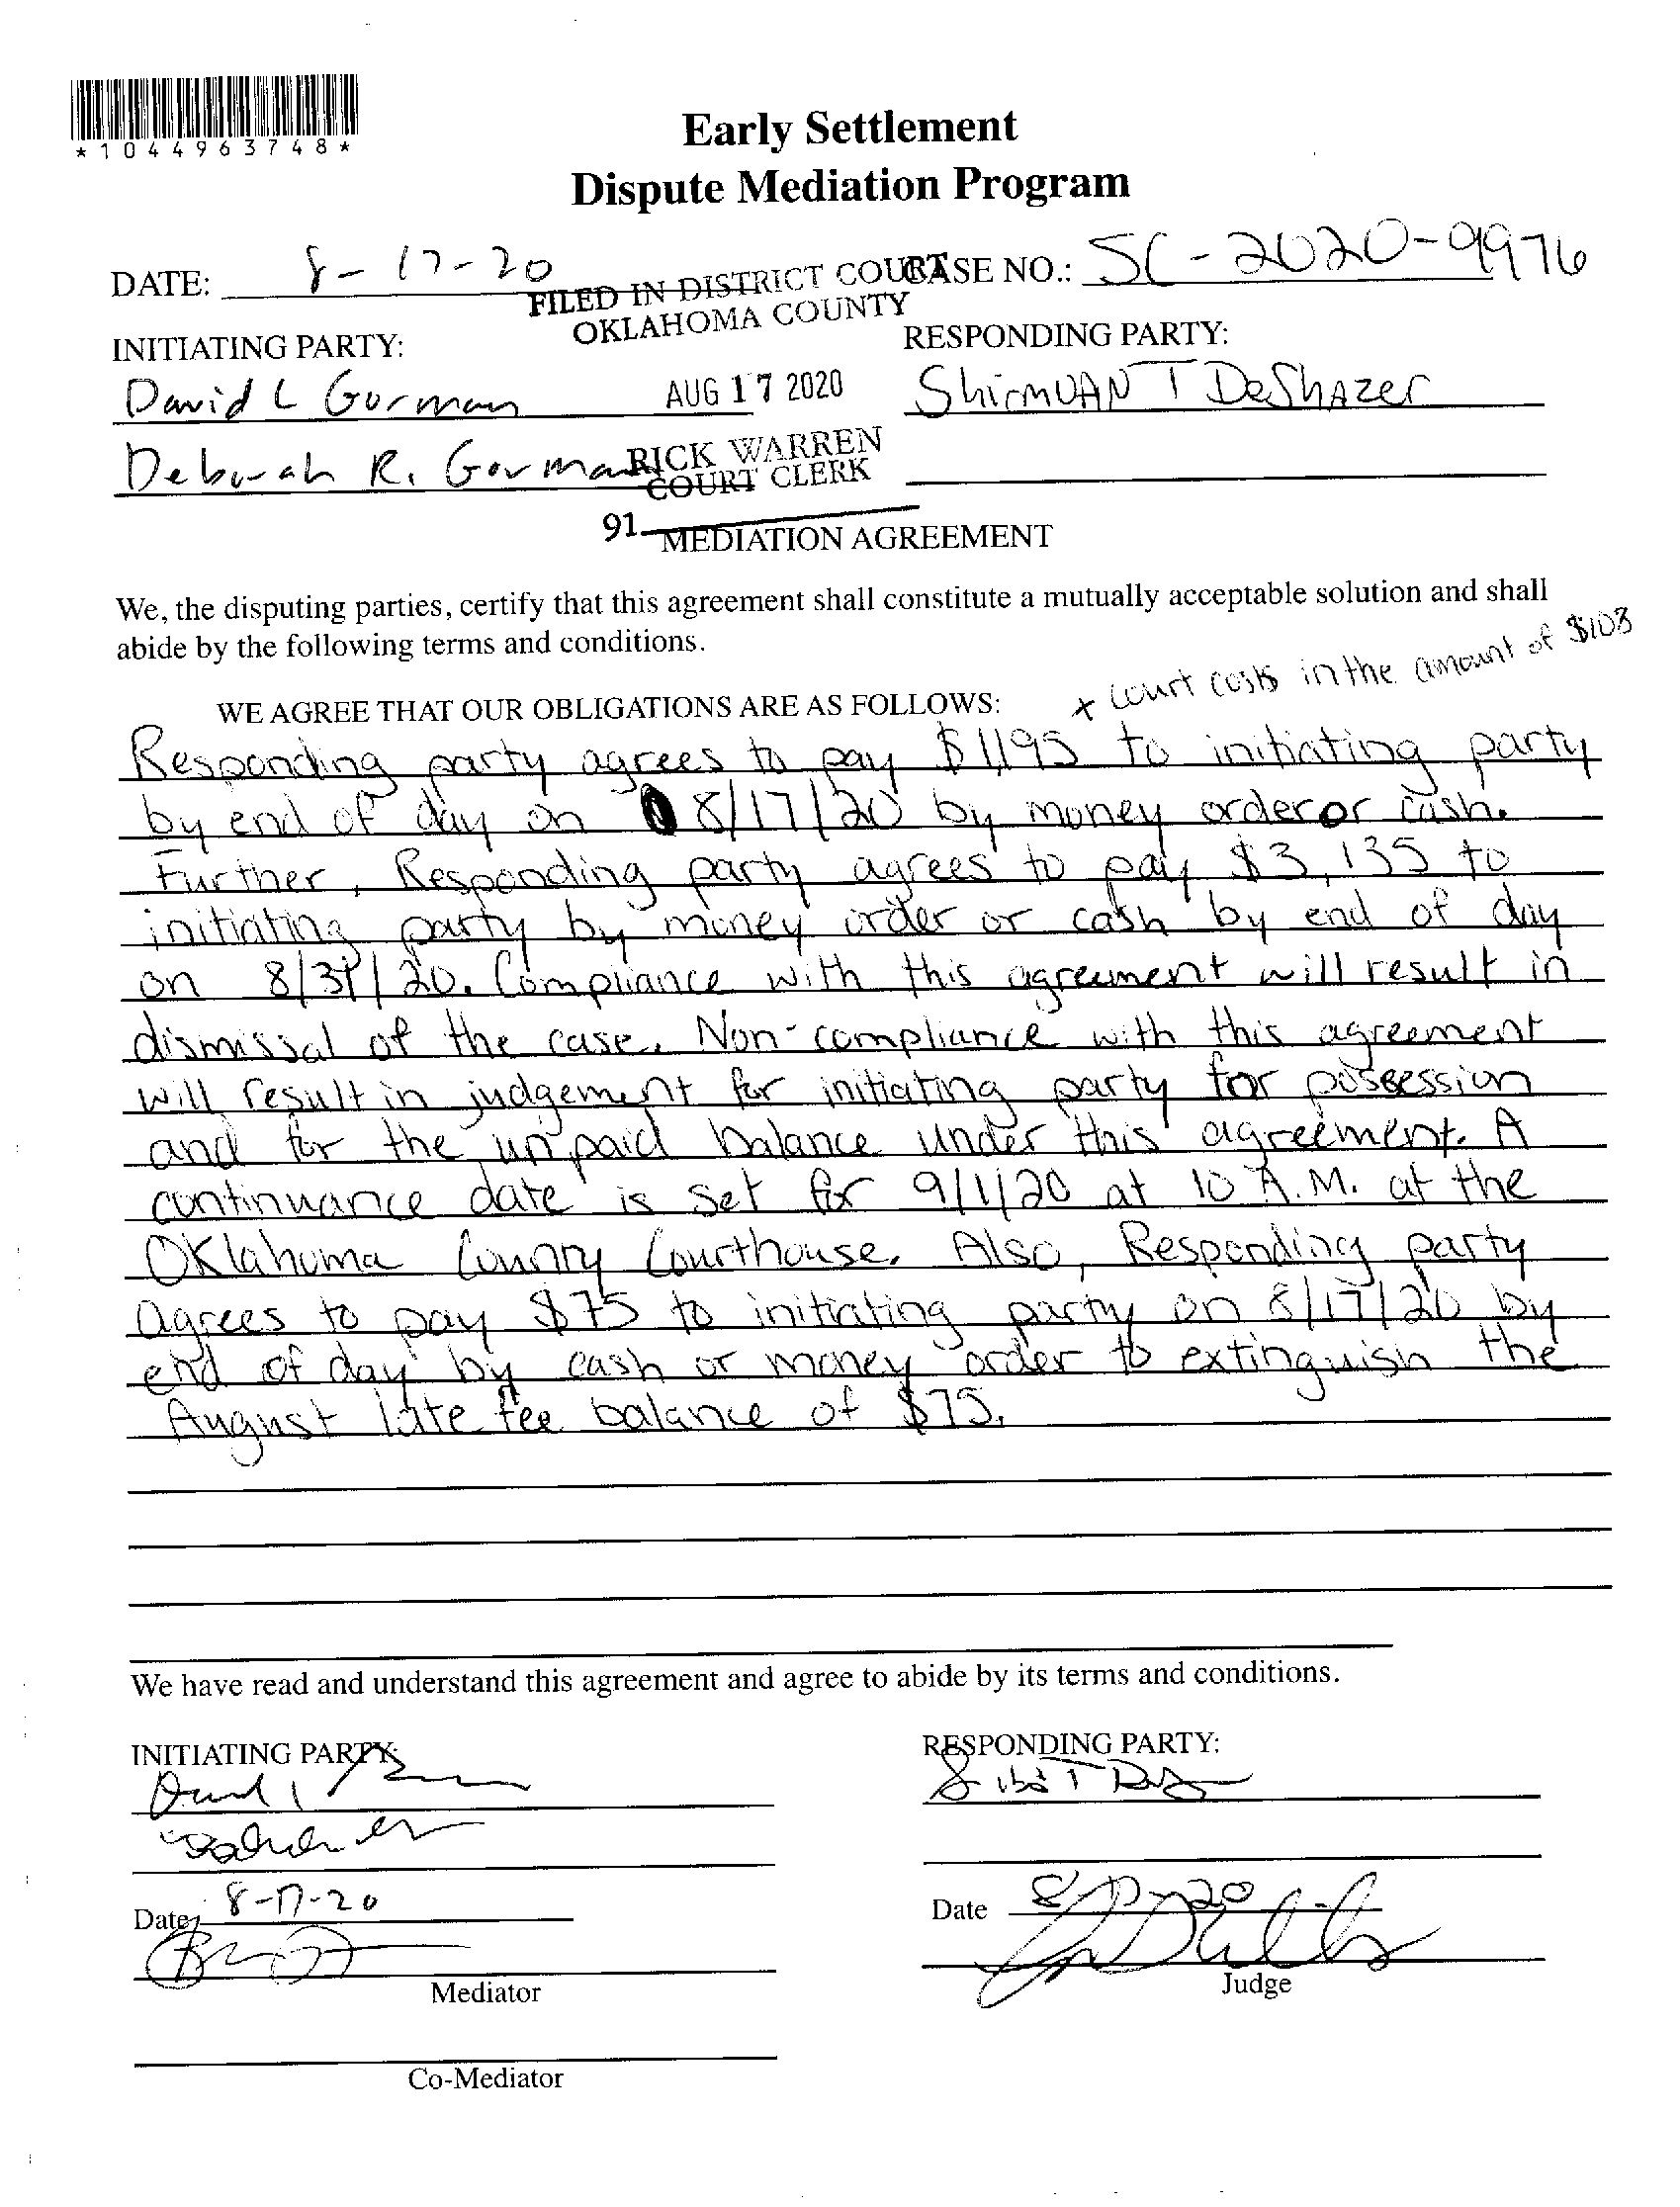 *1044963748*
Early Settlement
Dispute Mediation Program
DATE: 8-17-20
CASE NO.: SC-2020-9976
FILED IN DISTRICT COURT
OKLAHOMA COUNTY
INITIATING PARTY:
RESPONDING PARTY:
David L Gorman
AUG 17 2020
ShirmVAN T DeShAzer
Deborah R. Gorman
RICK WARREN
COURT CLERK
91
MEDIATION AGREEMENT
We, the disputing parties, certify that this agreement shall constitute a mutually acceptable solution and shall
abide by the following terms and conditions.
+ court costs in the amount of $108
WE AGREE THAT OUR OBLIGATIONS ARE AS FOLLOWS:
Responding party agrees to pay $1,195 to initiating party
by end of day on 8/17/20 by money order or cash.
Further, Responding party agrees to pay $3,135 to
initiating party by money order or cash by end of day
on 8/31/20. Compliance with this agreement will result in
dismissal of the case. Non-compliance with this agreement
will result in judgement for initiating party for possession
and for the unpaid balance under this agreement. A
continuance date is set for 9/1/20 at 10 A.M. at the
Oklahoma County Courthouse. Also, Responding party
agrees to pay $75 to initiating party on 8/17/20 by
end of day by cash or money order to extinguish the
August late fee balance of $75.
We have read and understand this agreement and agree to abide by its terms and conditions.
INITIATING PARTY:
RESPONDING PARTY:
Date 8-17-20
Date 8-17-20
Mediator
Judge
Co-Mediator